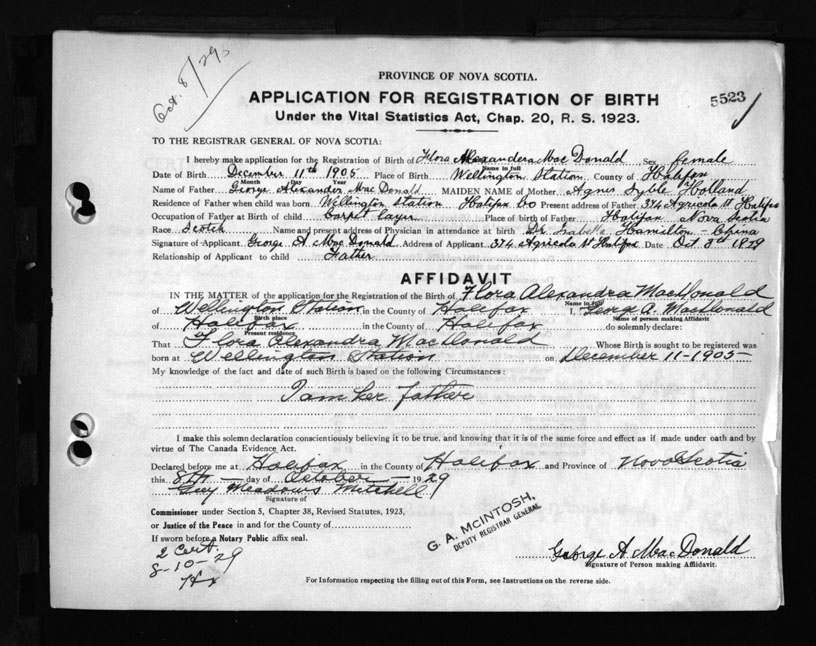 Oct. 8/29
PROVINCE OF NOVA SCOTIA.
5523
APPLICATION FOR REGISTRATION OF BIRTH
Under the Vital Statistics Act, Chap. 20, R. S. 1923.
TO THE REGISTRAR GENERAL OF NOVA SCOTIA:
I hereby make application for the Registration of Birth of Flora Alexandera Mac Donald Sex female
Name in full
Date of Birth December 11th 1905 Place of Birth Wellington Station County of Halifax
Month Day Year
Name of Father George Alexander Mac Donald MAIDEN NAME of Mother Agnes Holland
Residence of Father when child was born Wellington Station Halifax Co Present address of Father 374 Agricola St Halifax
Occupation of Father at Birth of child Carpet layer Place of birth of Father Halifax Nova Scotia
Race Scotch Name and present address of Physician in attendance at birth Dr. Isabella Hamilton - China
Signature of Applicant George A Mac Donald Address of Applicant 374 Agricola St Halifax Date Oct 8th 1929
Relationship of Applicant to child Father
AFFIDAVIT
IN THE MATTER of the application for the Registration of the Birth of Flora Alexandra MacDonald
Name in full
of Wellington Station in the County of Halifax I, George A. MacDonald
Birth place
Name of person making Affidavit
of Halifax in the County of Halifax do solemnly declare:
Present residence
That Flora Alexandra MacDonald Whose Birth is sought to be registered was
born at Wellington Station on December 11-1905-
My knowledge of the fact and date of such Birth is based on the following Circumstances:
I am her father
I make this solemn declaration conscientiously believing it to be true, and knowing that it is of the same force and effect as if made under oath and by
virtue of The Canada Evidence Act.
Declared before me at Halifax in the County of Halifax and Province of Nova Scotia
this 8th day of October 1929
Guy Meadows Mitchell
Signature of
Commissioner under Section 5, Chapter 38, Revised Statutes, 1923,
or Justice of the Peace in and for the County of
If sworn before a Notary Public affix seal.
G. A. McINTOSH,
DEPUTY REGISTRAR GENERAL
2 Cert.
8-10-29
Hx
George A Mac Donald
Signature of Person making Affidavit.
For Information respecting the filling out of this Form, see Instructions on the reverse side.